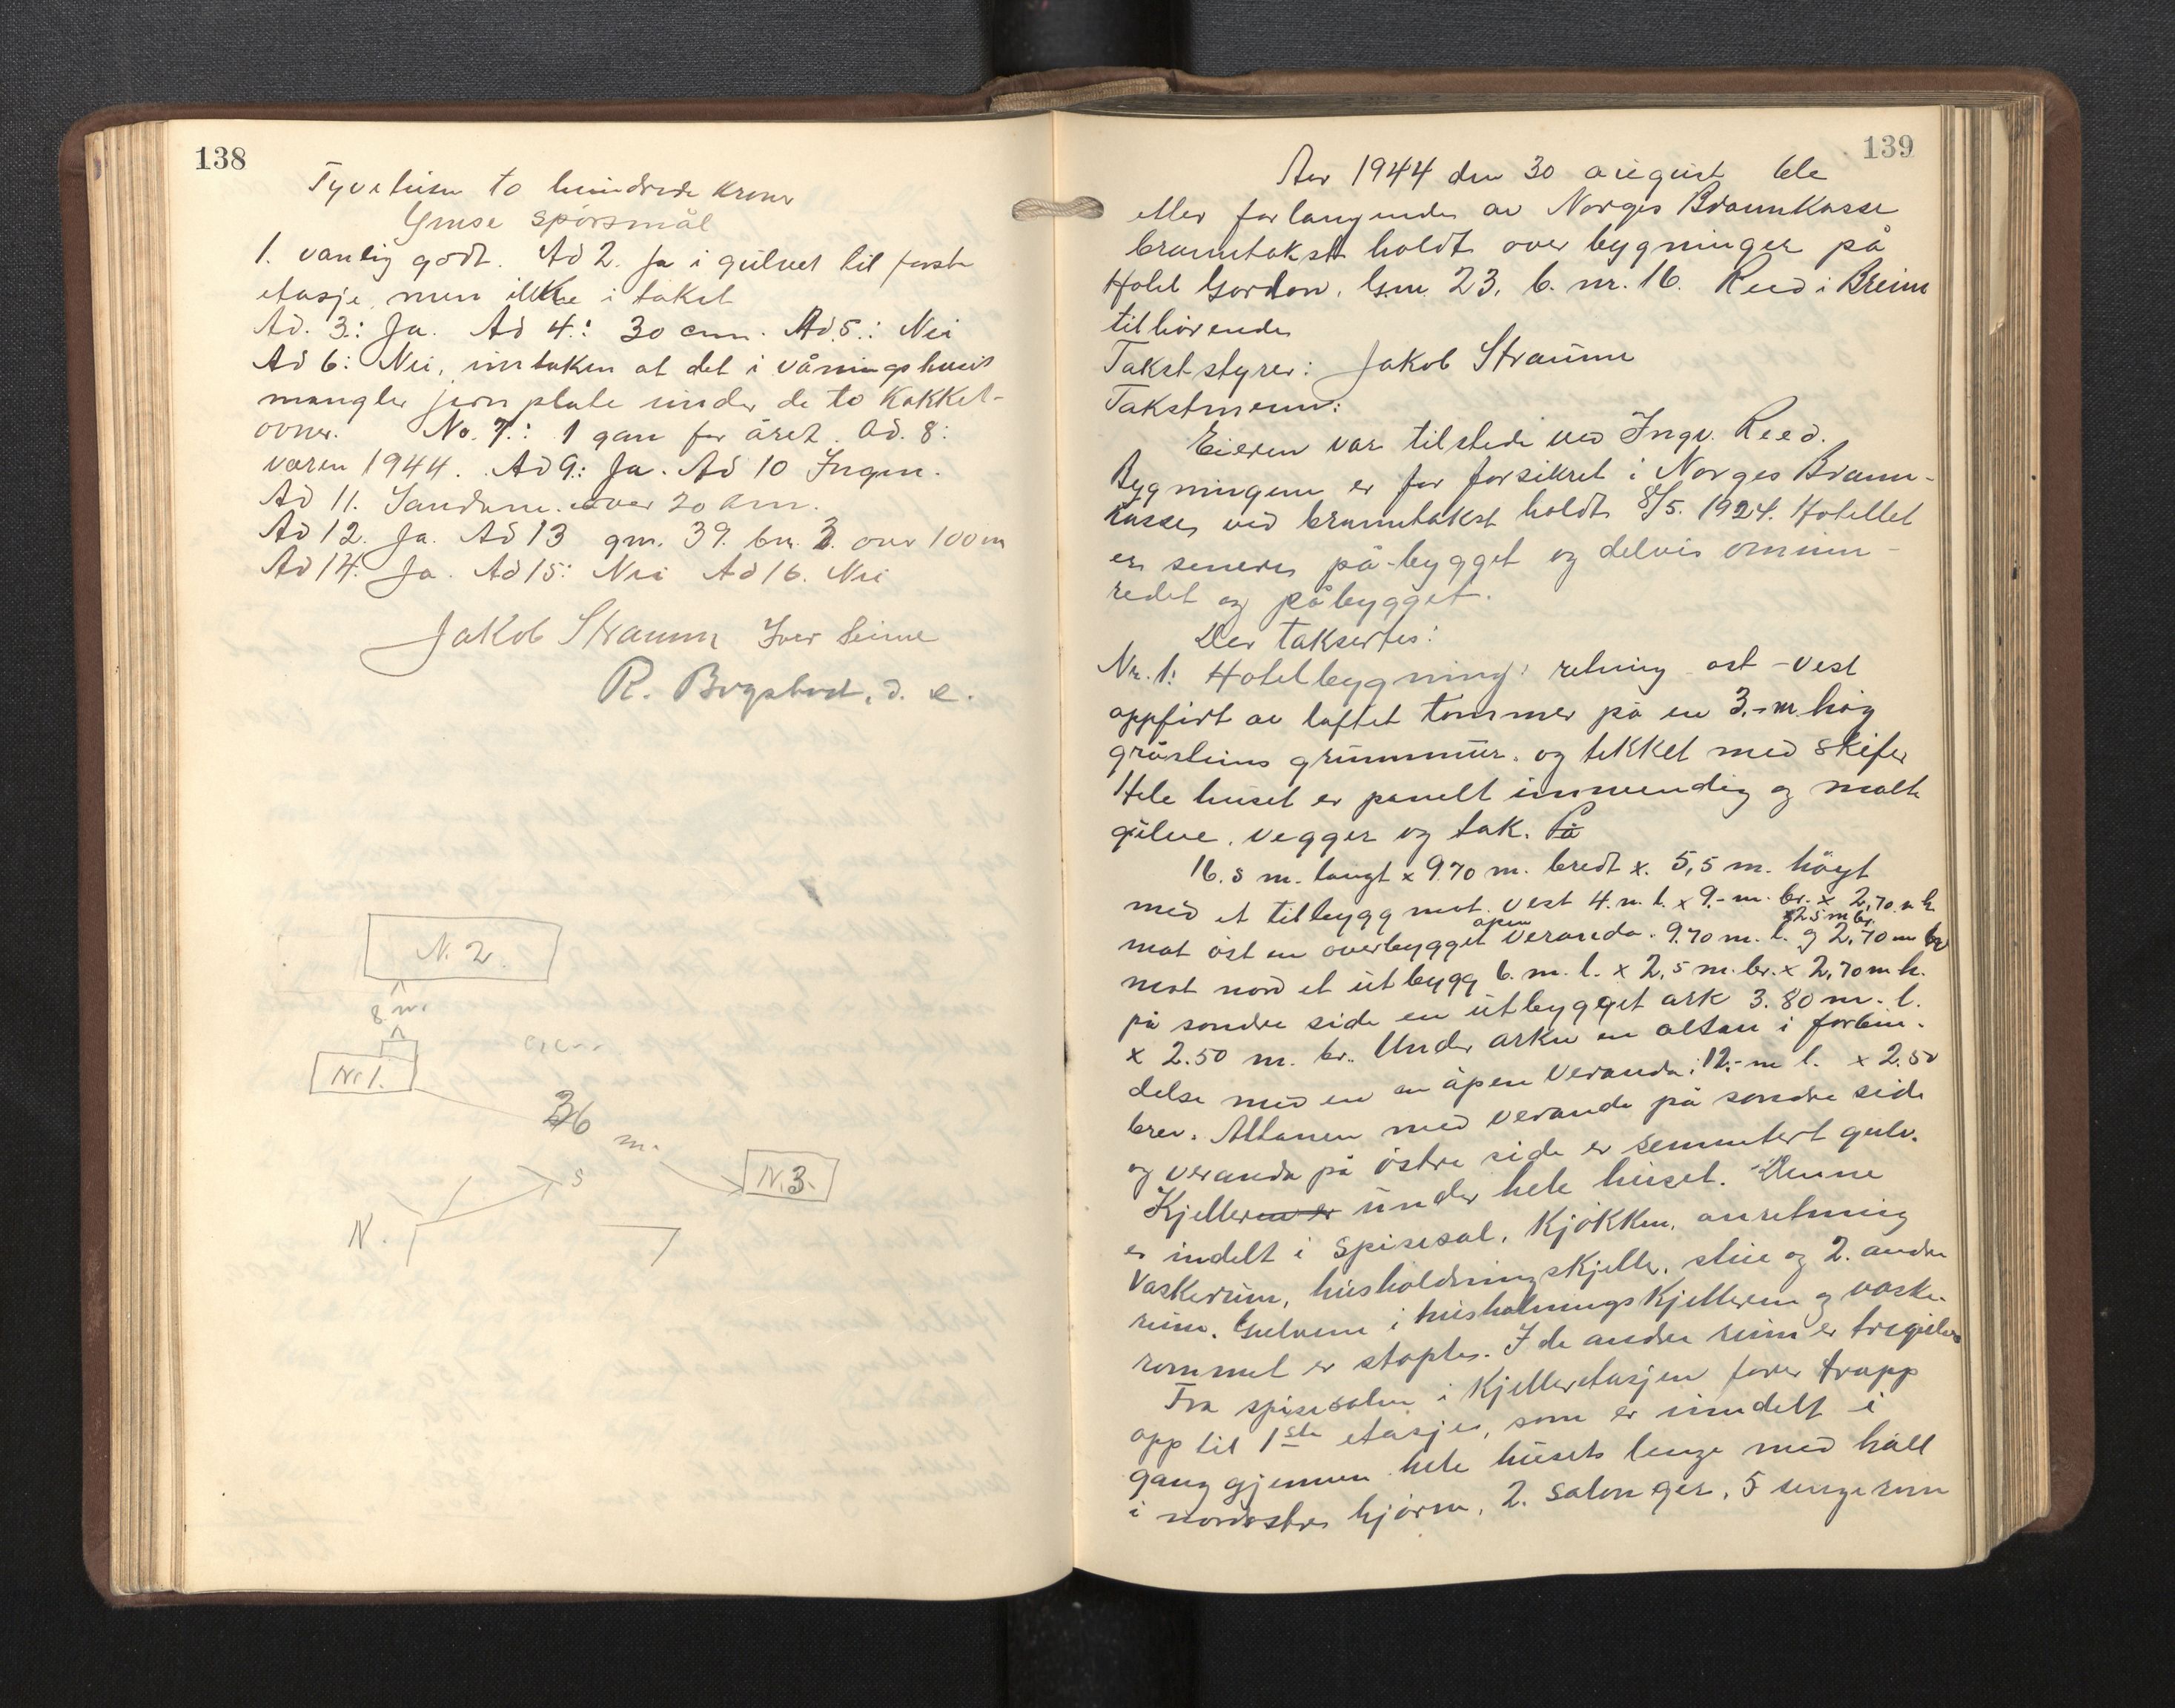 138
Tyvetusen to hundrede kroner
Grense spörsmål
1. vanlig godt. Ad 2. Ja i gulvet til förste
etasje, men ikke i taket
Ad. 3.: Ja. Ad 4.: 30 cm. Ad.5.: Nei
Ad 6: Nei, untaken at det i våningshuset
mangler jern plate under de to Kakkel-
ovner. No. 7.: 1 gan for året. Ad. 8:
våren 1944. Ad 9.: Ja. Ad 10 Ingen.
Ad 11. Sandane. over 20 km.
Ad 12. Ja. Ad 13 gm. 39. bn. 3. over 100 m
Ad 14. Ja. Ad 15: Nei Ad 16. Nei
Jakob Straume Iver Seime
R. Bogstad. d. e.
N. 2.
8 m.
Nr 1.
36
m.
N. 3.
S
N.
139
Aar 1944 den 30 august ble
etter forlangende av Norges Brannkasse
branntakst holdt over bygninger på
Hotel Gordon, Gm. 23, b. nr. 16. Reed i Breim
tilhörende
Takststyrer: Jakob Straume
Takstmenn:
Eieren var tilstede ved Ingv. Reed.
Bygningene er för forsikret i Norges Brann-
kasse, ved branntakst holdt 8/5. 1924. Hotellet
er senere på-bygget og delvis ominn-
redet og påbygget.
Der taksertes:
Nr. 1: Hotelbygning: retning ost - vest
oppfört av laftet tömmer på en 3.- m hög
gråsteins grunnmur. og tekket med skifer
Hele huset er panelt innvendig og malte
gulve, vegger og tak. På
16.5 m. langt x 9.70 m. bredt x. 5,5 m. höyt
med et tilbygg mot. vest 4. m. l. x 9.- m. br. x 2,70. m h
mot öst en overbygget åpen veranda. 9.70 m. l. x 2.5 m br. g 2,70 m br
mot nord et utbygg 6. m. l. x 2,5 m. br. x 2,70 m h.
på söndre side en utbygget ark 3.80 m. l.
x 2.50 m. br. Under arken en altan i forbin-
delse med en en åpen veranda: 12.- m l. x 2.50
bred. Altanen med veranda på söndre side
og veranda på östre side er sementert gulv.
Kjelleren er under hele huset. Denne
er indelt i spisesal, kjökken, anretning
vaskerum, husholdningskjeller, stue og 2. andre
rum. Gulvene i husholningskjelleren og vaske-
rommet er stöpte. I de andre rum er tregulv
Fra spisesalen i kjelleretasjen förer trapp
opp til 1ste etasje, som er inndelt i
gang gjennem hele husets lenge med hall
i nordöstre hjörne, 2. salonger, 5 senge rum